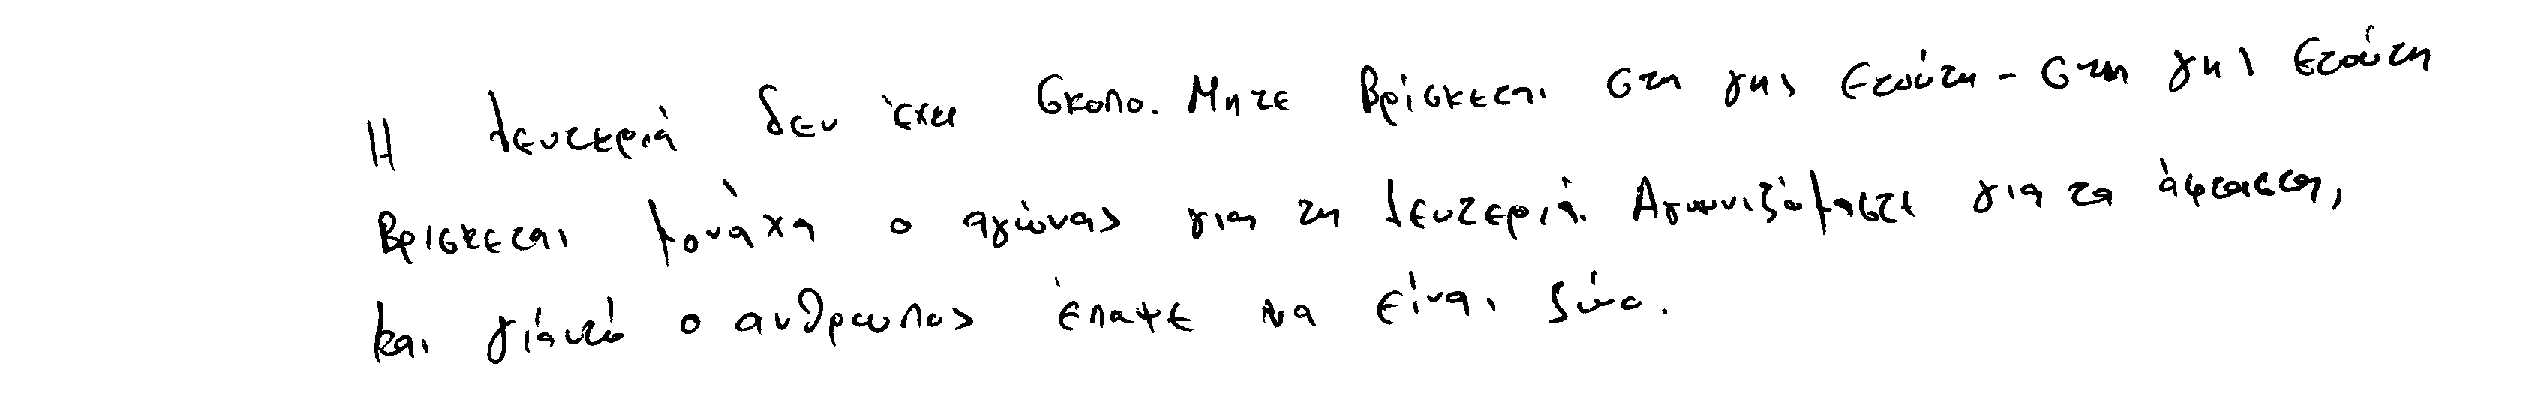 Η λευτεριά δεν έχει σκοπο. Μητε βρίσκεται στη γης ετούτη - στη γης ετούτη
βρισκεται μονάχα ο αγώνας για τη λευτεριά. Αγωνιζόμαστε για τα άφταστα,
και γιάυτό ο ανθρωπος έπαψε να είναι ζώο.